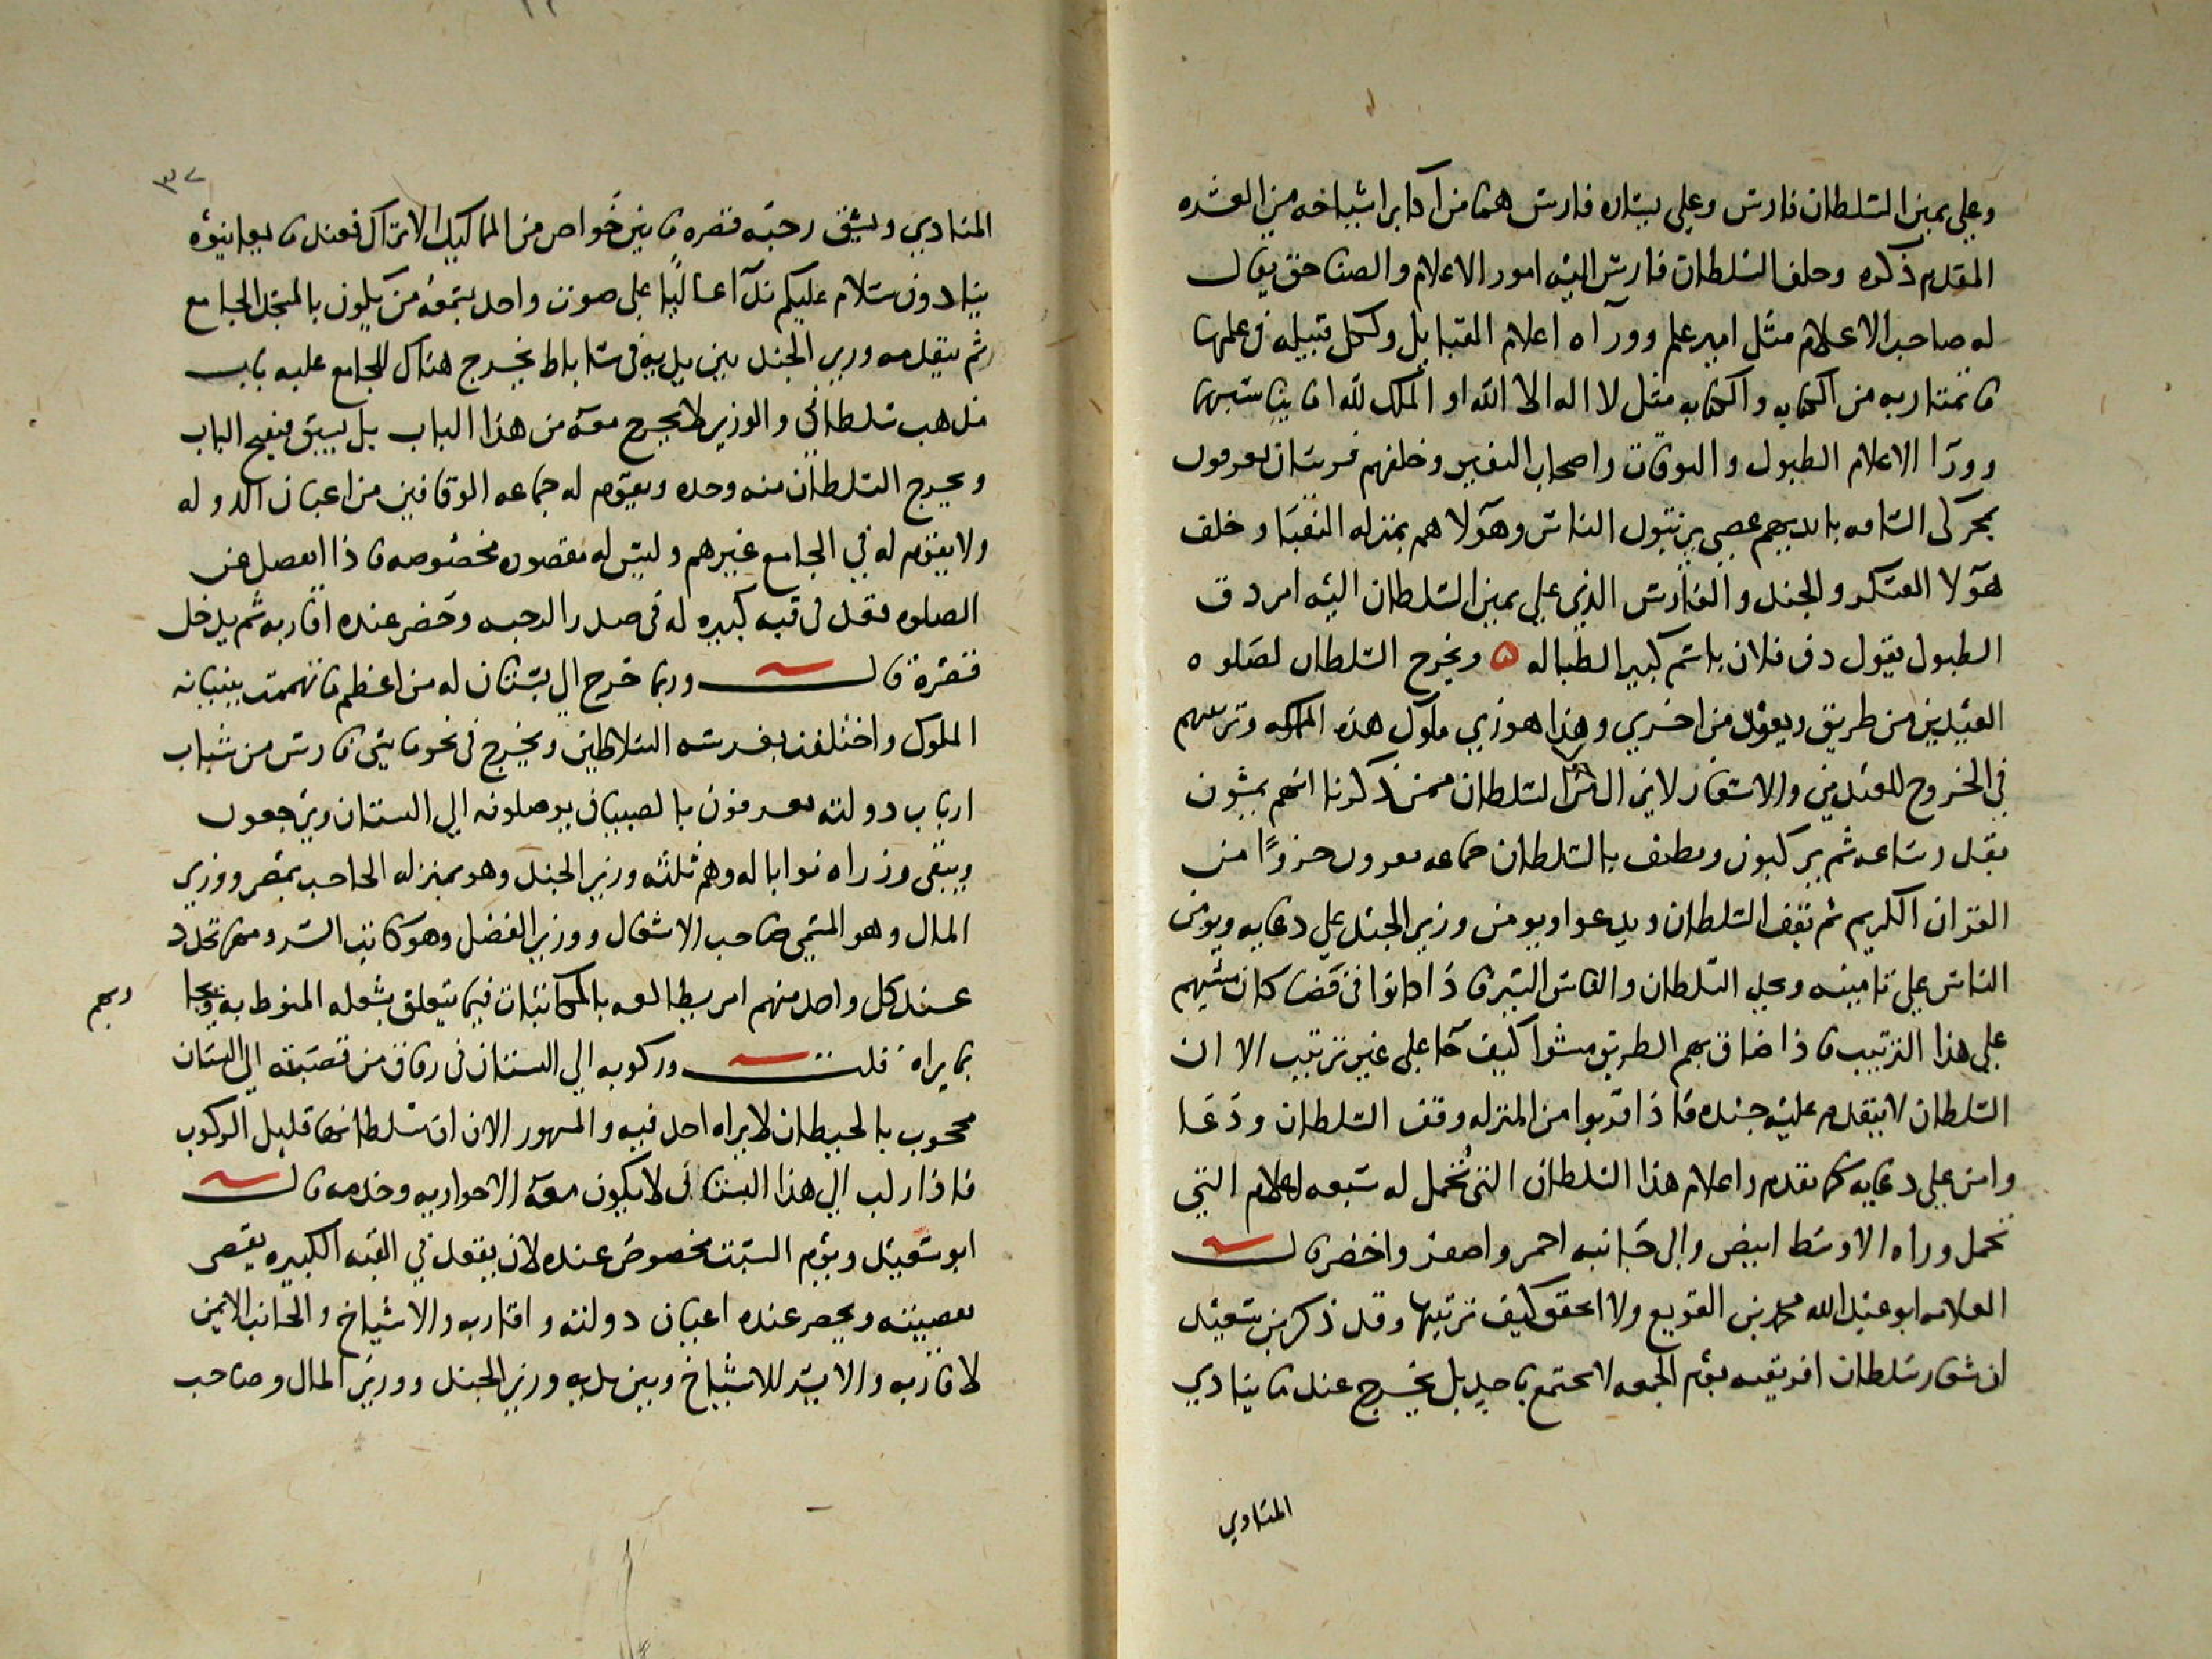 وعلي يمين السلطان فارس وعلي يساره فارس هما من اكابر اشياخه من العشره
المقدم ذكره وخلف السلطان فارس اليه امور الاعلام والصناجق يقال
له صاحب الاعلام مثل امير علم وورآه اعلام القبايل ولكل قبيله في علمها
ما تمتاز به من الكتابه والكتابه مثل لا اله الا الله او الملك لله او ما يناسبها
وورآ الاعلام الطبول والبوقات واصحاب النفير وخلفهم فرسان يعرفون
بمحركى الساقه بايديهم عصي يرتبون الناس وهولآ هم بمنزله النقبا وخلف
هولآ العسكر والجند والفارس الذي علي يمين السلطان اليه امر دق
الطبول يقول دق فلان باسم كبير الطباله ۵ ويخرج السلطان لصلوه
العيدين من طريق ويعود من اخري وهذا هو زي ملوك هذه المملكه وترتيبهم
في الخروج للعيدين والاسفار لاين السلطان ممن ذكرنا انهم يمشون
بقدر ساعه ثم يركبون ويطيف بالسلطان جماعه يقرون حزوًا من
القران الكريم ثم يقف السلطان ويدعوا ويومن وزير الجند علي دعايه ويومن
الناس علي تامينه ويجد السلطان والناس السير فاذا كانوا في فضا كان مشيهم
علي هذا الترتيب فاذا ضاق بهم الطريق مشوا كيف جا علي غير ترتيب الا ان
السلطان لا يتقدم عليه جنده فاذا قربوا من المنزله وقف السلطان ودعا
وامن علي دعايه كما تقدم واعلام هذا السلطان التى تحمل له سبعه اعلام التي
تحمل وراه الاوسط ابيض والى جانبه احمر واصفر واخضر قال
العلامه ابو عبد الله محمد بن القويع ولا احقق كيف ترتيبها وقد ذكر بن سعيد
ان شعار سلطان افريقيه يوم الجمعه لا يجتمع باحد بل يخرج عندما ينادي
المنادي
٣٧
المنادي ويشق رحبه قصره ما بين خواص من المماليك الاتراك فعندما يعاينوه
ينادون سلام عليكم ندآ عاليًا على صوت واحد يسمعه من يكون بالمسجد الجامع
ثم يتقدمه وزير الجند بين يديه في ساباط يخرج هناك للجامع عليه باب
مذهب سلطاني والوزير لا يخرج معه من هذا الباب بل يسبق فيفتح الباب
ويخرج السلطان منه وحده ويقوم له جماعه الوقافين من اعيان الدوله
ولا يقوم له في الجامع غيرهم وليس له مقصوره مخصوصه فاذا انفصل عن
الصلوه قعد في قبه كبيره له في صدر الرحبه وحضر عنده اقاربه ثم يدخل
قصره قال وربما خرج الى بستان له من اعظم ما تهممت ببنيانه
الملوك واختلفت بغرسه السلاطين ويخرج في نحو مايتى فارس من شباب
ارباب دولته يعرفون بالصبيان يوصلونه الي البستان ويرجعون
ويبقى وزراه نوابا له وهم ثلثه وزير الجند وهو بمنزله الحاجب بمصر ووزير
المال وهو المسمي صاحب الاشغال ووزير الفضل وهو كاتب السر ومهما تجدد
عند كل واحد منهم امر يطالعه بالمكاتبات فيما يتعلق بشغله المنوط به ويجا
ويجم
بما يراه قلت وركوبه الي البستان في زقاق من قصبته الي البستان
محجوب بالحيطان لا يراه احد فيه والمشهور الان ان سلطانها قليل الركوب
فاذا ركب الى هذا البستان لا يكون معه الا جواريه وخدمه قال
ابو سعيد ويوم السبت مخصوص عنده لان يقعد في القبه الكبيره بقصر
بقصبته ويحضر عنده اعيان دولته واقاربه والاشياخ والجانب الايمن
لاقاربه والايسر للاشياخ وبين يديه وزير الجند ووزير المال وصاحب